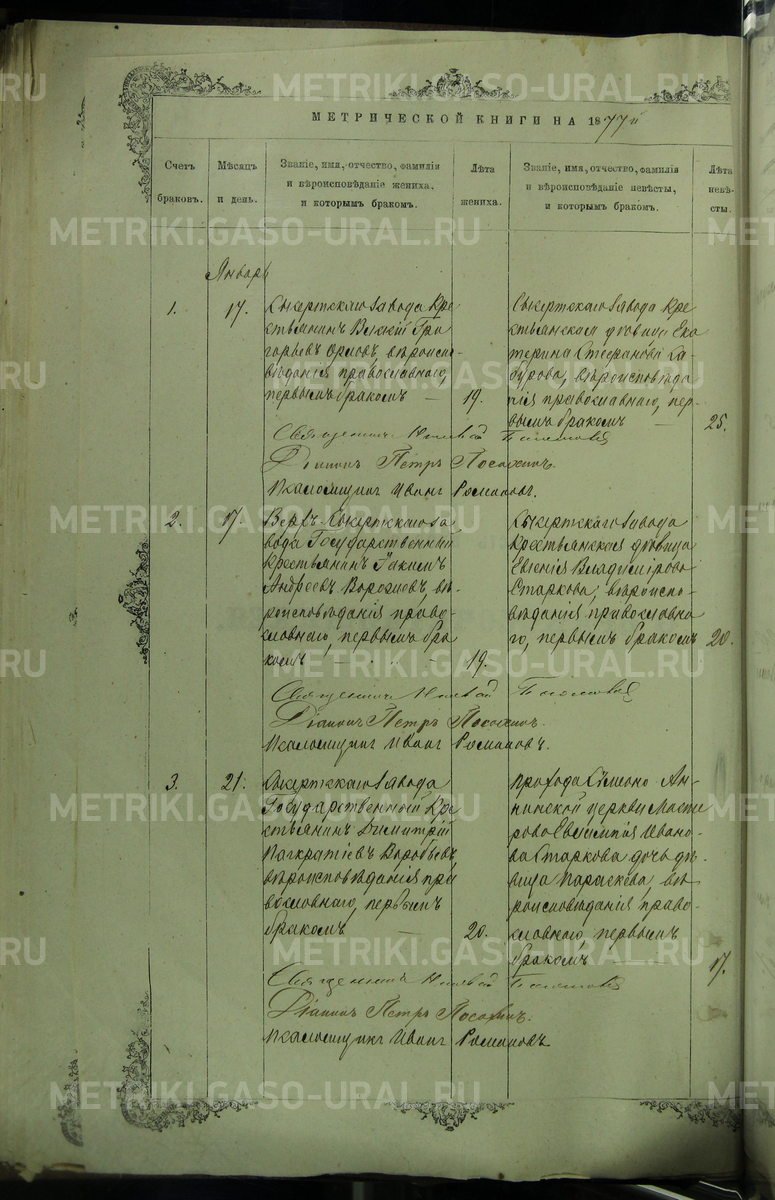 МЕТРИЧЕСКОЙ КНИГИ НА 1877й
Счетъ браковъ.
Мѣсяцъ и день.
Званіе, имя, отчество, фамилія
и вѣроисповѣданіе жениха.
и которымъ бракомъ.
Лѣта жениха.
Званіе, имя, отчество, фамилія
и вѣроисповѣданіе невѣсты,
и которымъ бракомъ.
Лѣта невѣсты.
Январь
1.
17.
Сысертскаго завода Кре
стьянинъ Григорьевъ Орловъ, вѣроиспо-
вѣданія православнаго,
первымъ бракомъ
19.
Сысертскаго завода Кре
стьянская дѣвица Ека
терина Стефанова
вѣроисповѣда
нія православнаго, пер-
вымъ бракомъ
25.
Священникъ
Діаконъ Петръ
Псаломщикъ Иванъ Романовъ.
2.
17.
Верхъ-Сысертскаго за
вода Государственный
Крестьянинъ Іакимъ
Андреевъ вѣ
роисповѣданія право-
славнаго, первымъ бра
комъ
19.
Сысертскаго завода
Крестьянская дѣвица
Евгенія Владимірова
Старкова, вѣроиспо-
вѣданія православна
го, первымъ бракомъ
20.
Священникъ
Діаконъ Петръ
Псаломщикъ Иванъ Романовъ.
3.
21.
Сысертскаго завода
Государственный Кре
стьянинъ Димитрій
Панкратіевъ Воробьевъ,
вѣроисповѣданія пра
вославнаго, первымъ
бракомъ
20.
прихода Сѵмеоно Ан-
нинской церкви Масте
роваго Ивано-
ва Старкова дочь дѣ-
вица Параскева, вѣ
роисповѣданія право-
славнаго, первымъ
бракомъ
17.
Священникъ
Діаконъ Петръ
Псаломщикъ Иванъ Романовъ
METRIKI.GASO-URAL.RU